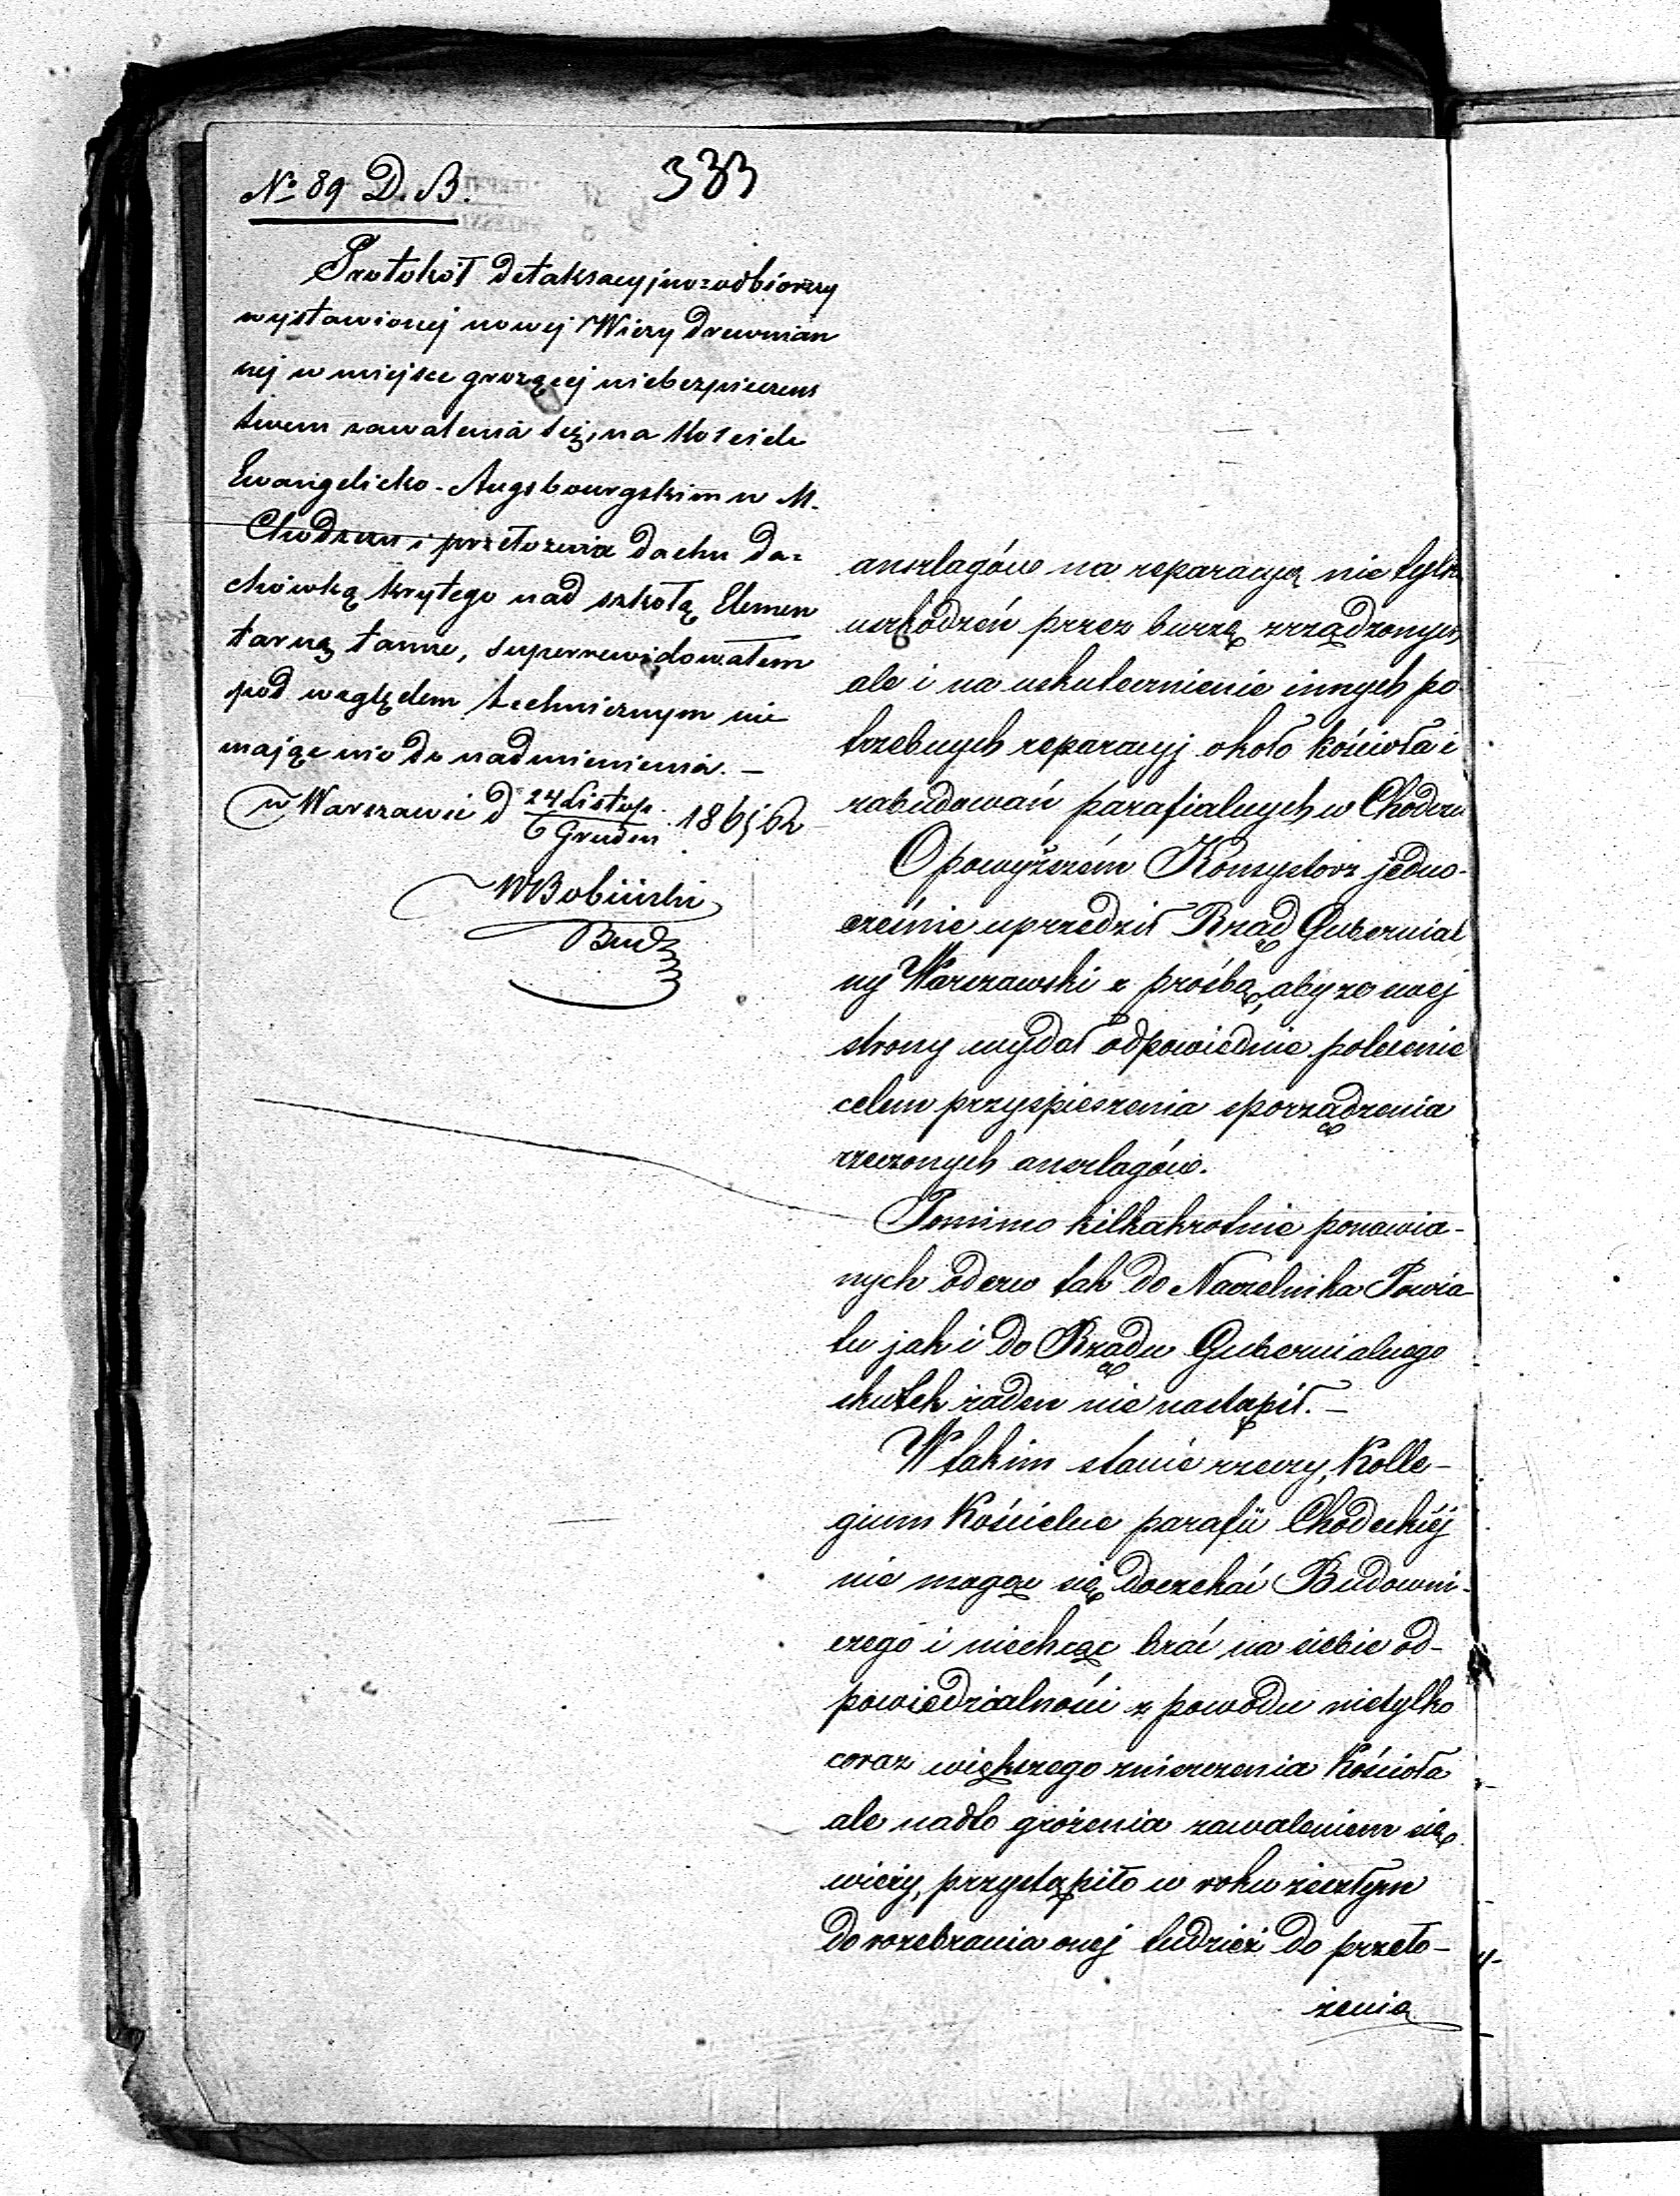 № 89 D. B.
333
Protokół detaksacyjno=odbiorczy
wystawionej nowej Wieży drewnian
nej w miejsce grożącej niebezpieczens
twem zawalenia się, na Kościele
Ewangelicko-Augsbourgskim w M.
Chodczu i przełożenia dachu da=
chówką krytego nad szkołą Elemen
tarną tamże, superrewidowałem
pod względem technicznym nie
mając nic do nadmienienia. —
w Warszawie d 24 Listop. / 6 Grudn. 186
WBobiński
Bud
anszlagów na reparacyą nie tylko
uszkodzeń przez burzę zrządzonych
ale i na uskutecznienie innych po
trzebnych reparacyj około kościoła i
zabudowań parafialnych w Chodczu
O powyższém Konsystorz jedno-
cześnie uprzedził Rząd Gubernial
ny Warszawski z prośbą, aby ze swej
strony wydał odpowiednie polecenie
celem przyspieszenia sporządzenia
rzeczonych anszlagów.
Pomimo kilkakrotnie ponawia-
nych odezw tak do Naczelnika Powia-
tu jak i do Rządu Gubernialnego
skutek żaden nie nastąpił. —
W takim stanie rzeczy, Kolle-
gium Kościelne parafii Chodeckiéj
nie mogąc się doczekać Budowni-
czego i niechcąc brać na siebie od-
powiedzialności z powodu nietylko
coraz większego zniszczenia Kościoła
ale nadto grożenia zawaleniem się
wieży, przystąpiło w roku zeszłym
do rozebrania onej tudzież do przeło-
żenia